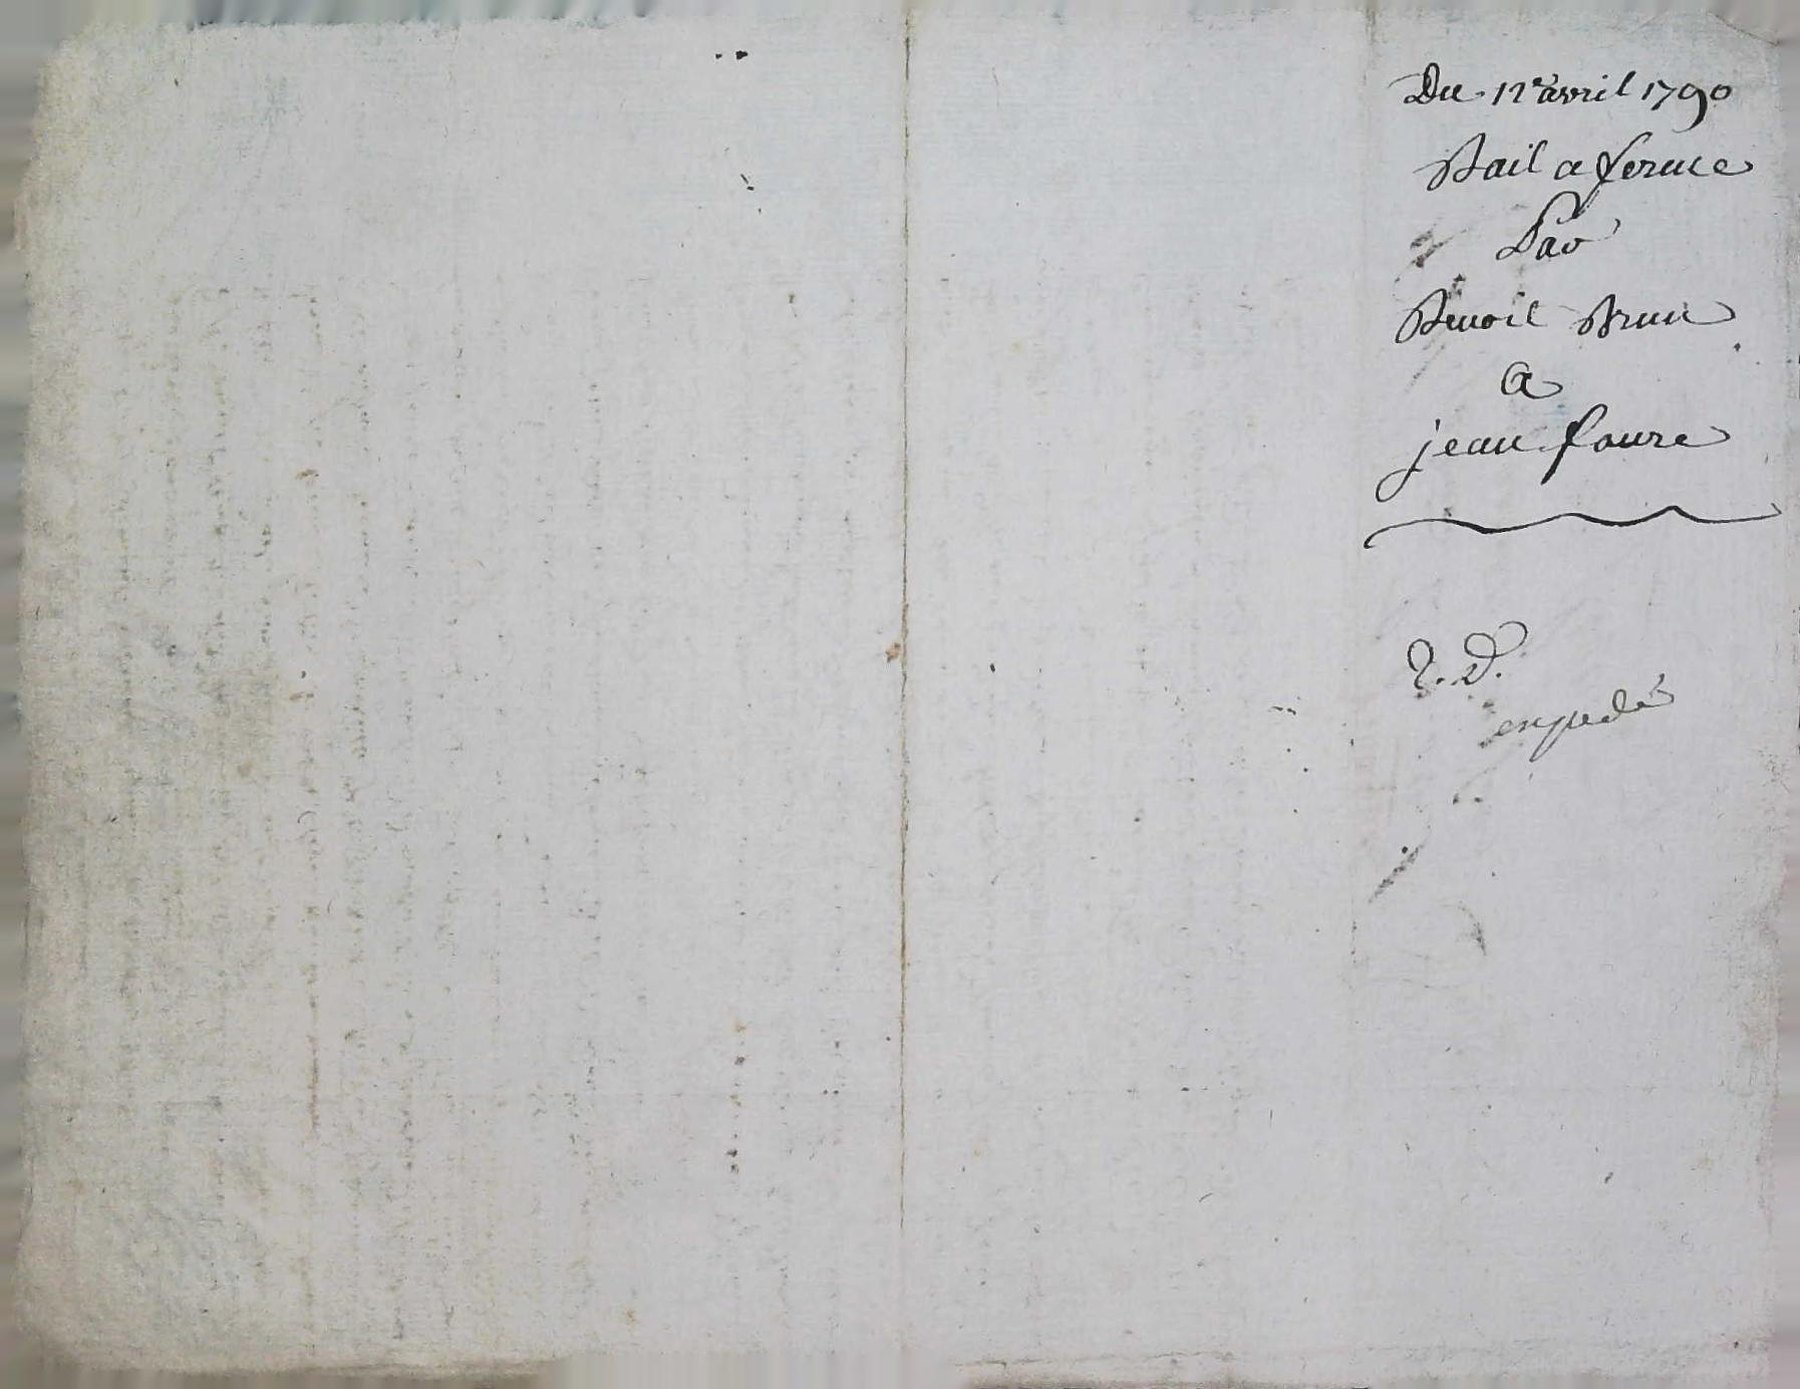 Du 12e avril 1790
Bail a ferme
Par
Benoit Brun
a
jean faure
expedé